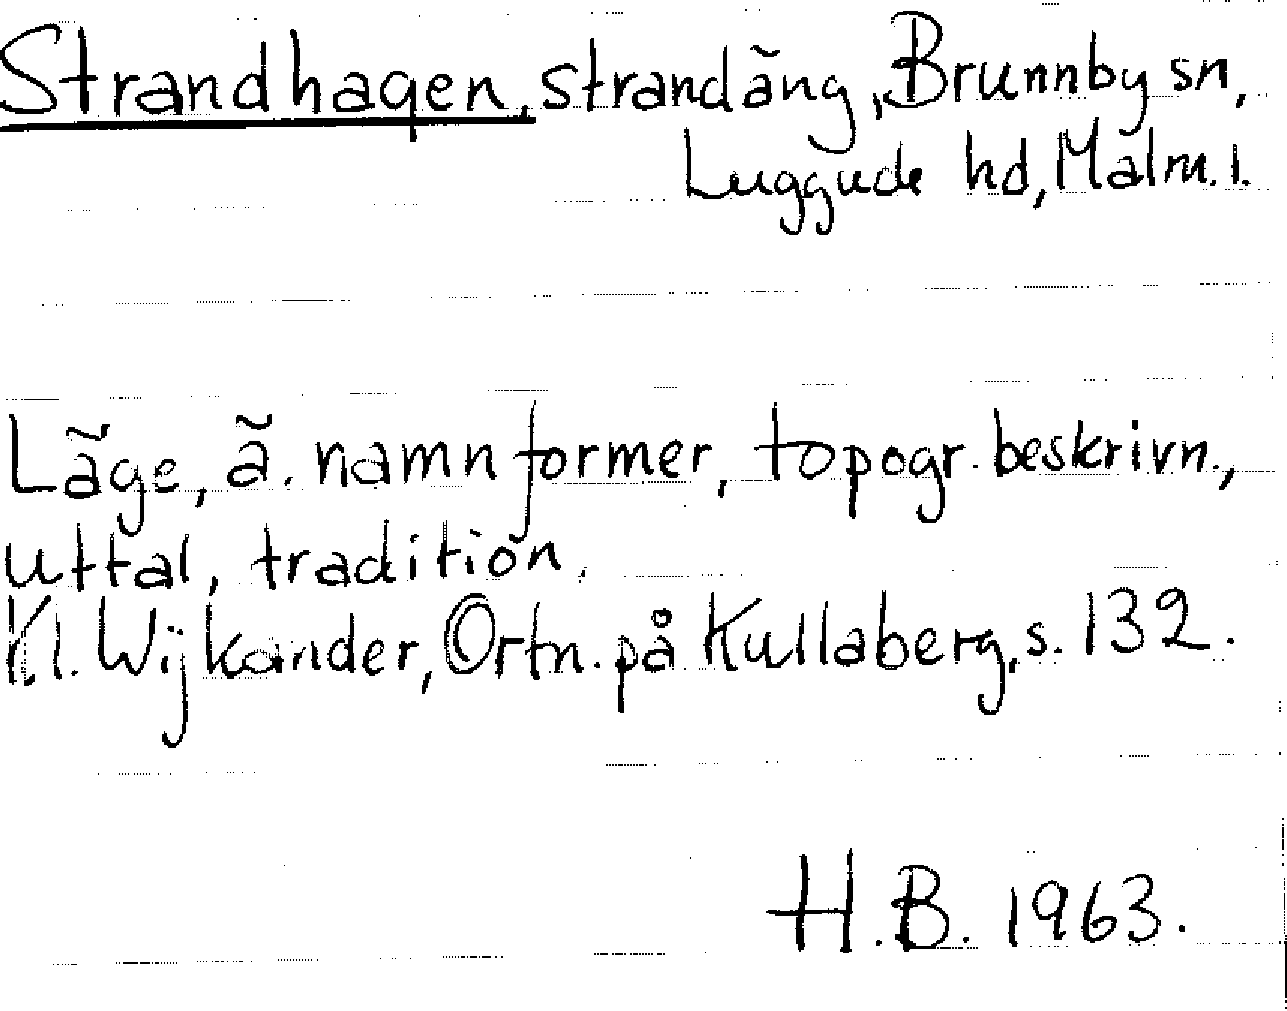 Strandhagen, strandäng, Brunnby sn,
Luggude hd, Malm. l.
Läge, ä. namnformer, topogr. beskrivn.,
uttal, tradition.
Kl. Wijkander, Ortn. på Kullaberg, s. 132.
H.B. 1963.